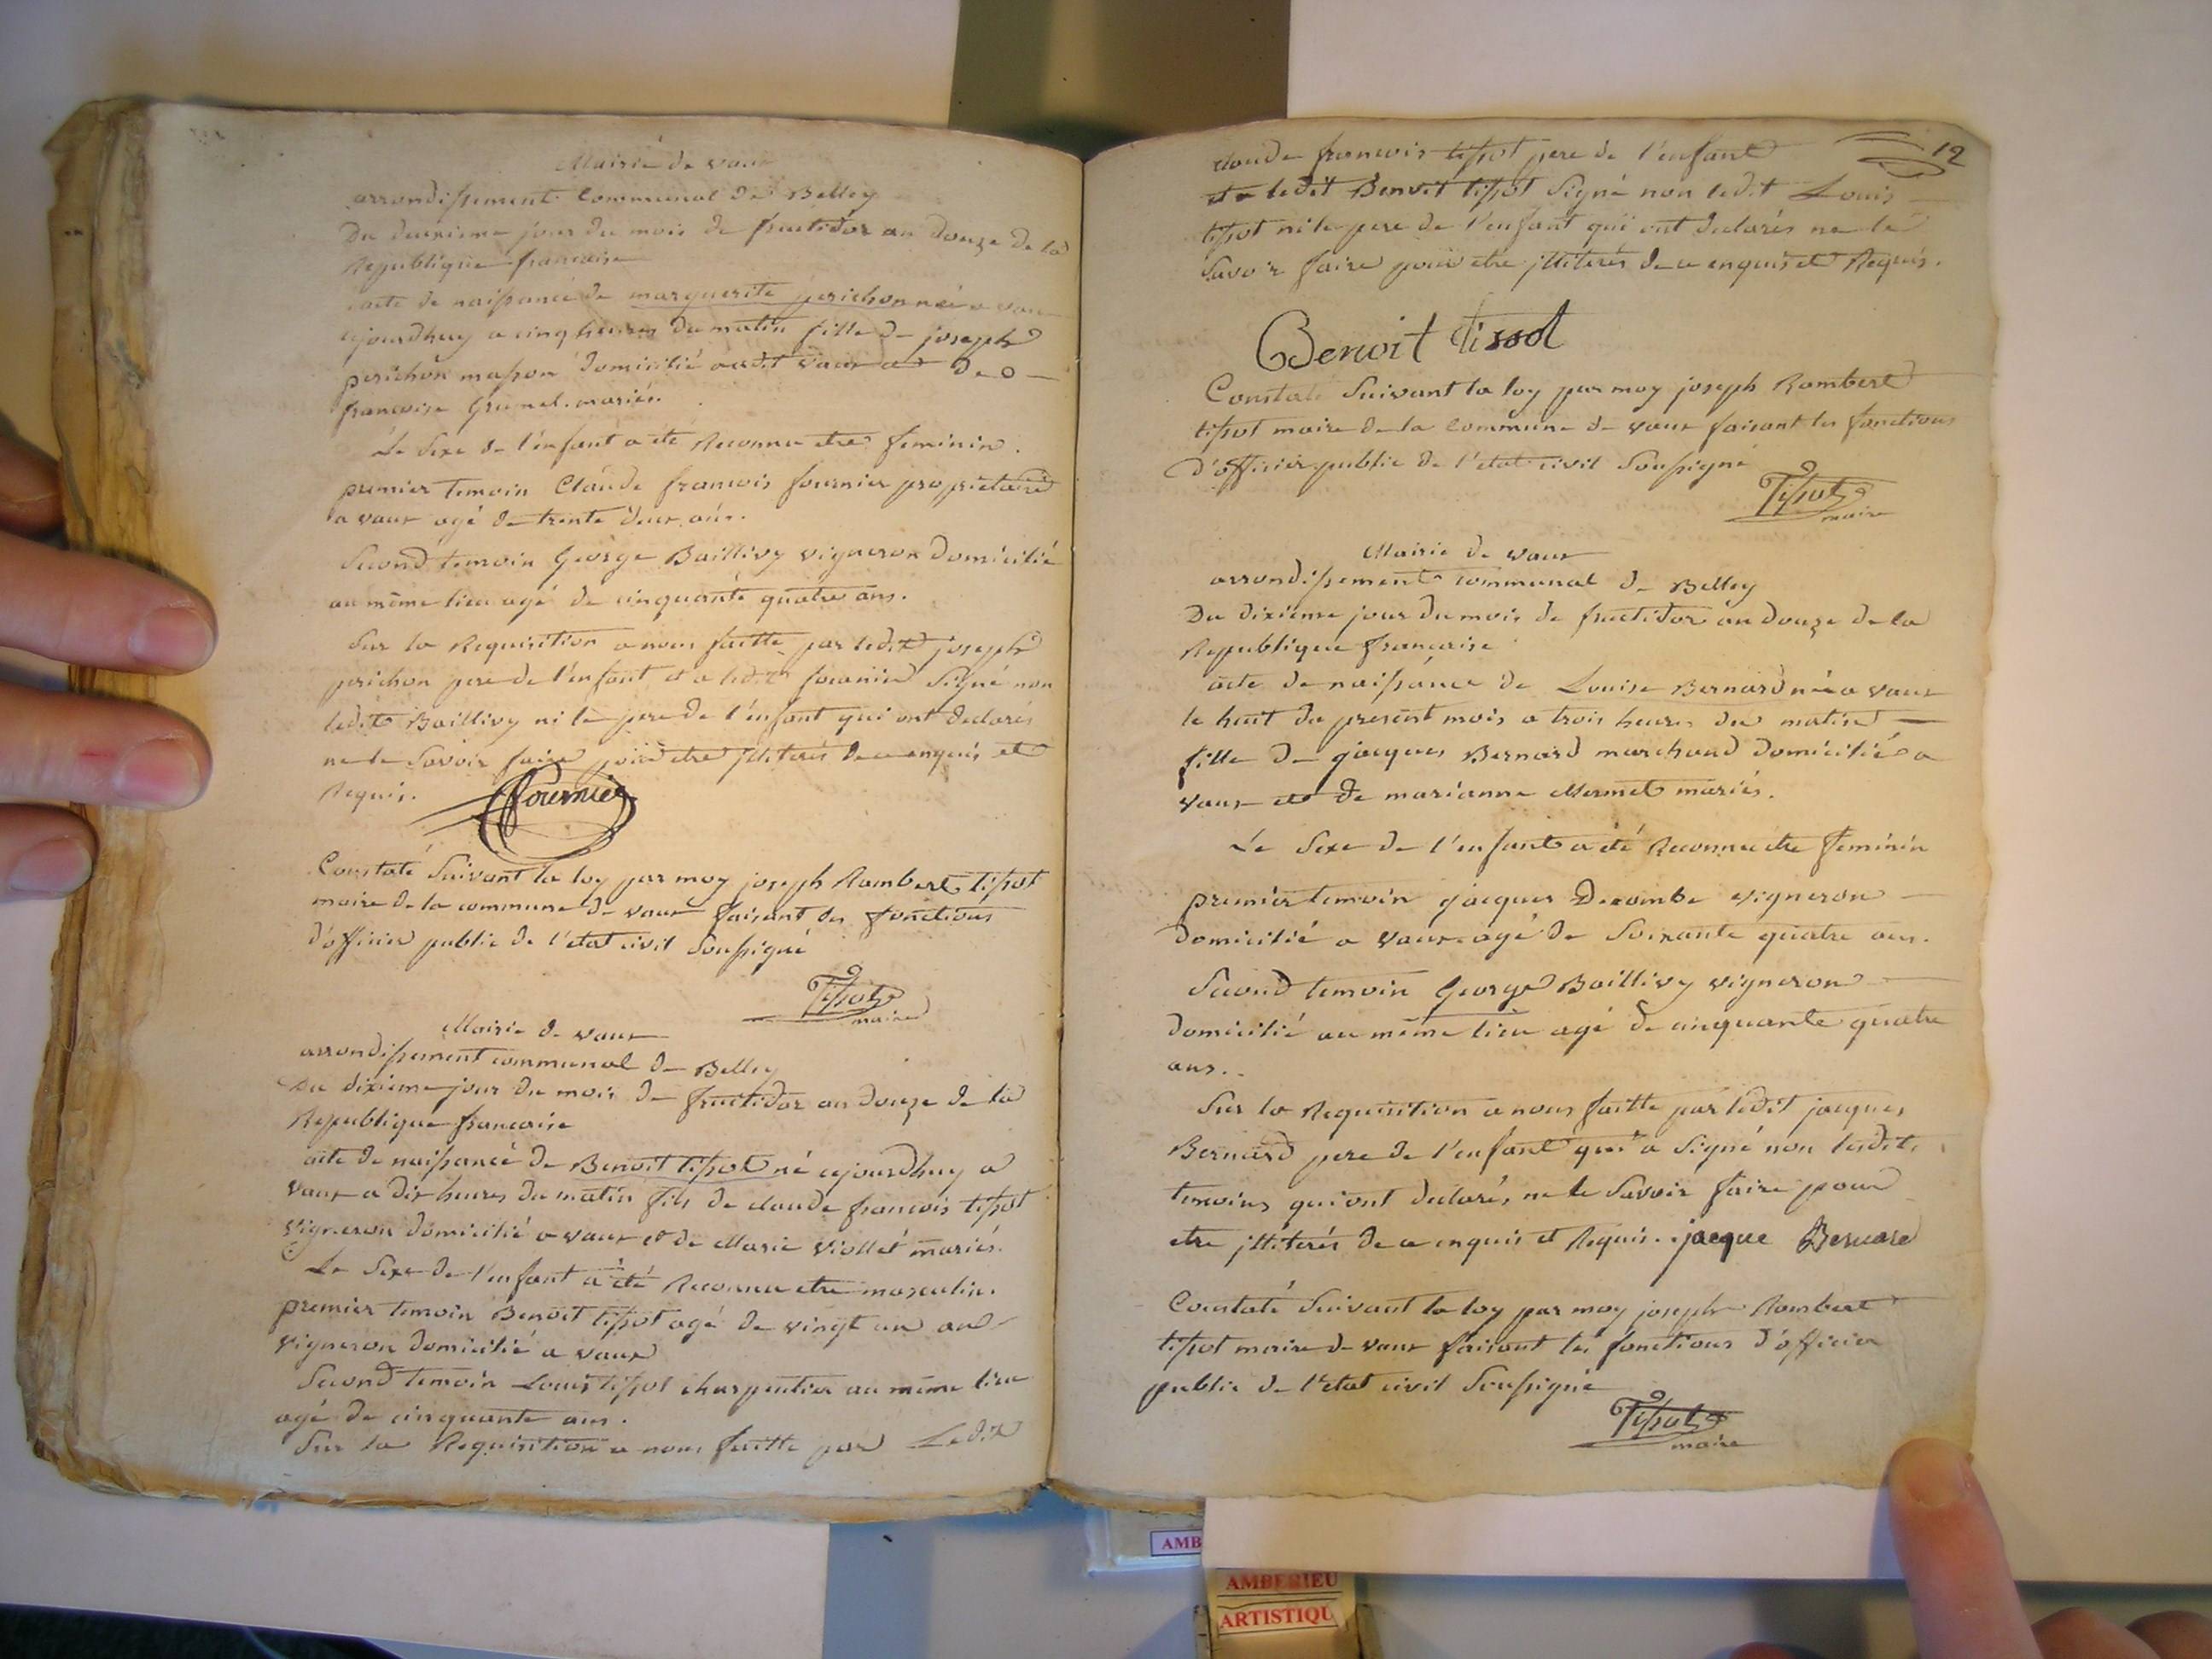 Mairie de vaux
arrondissement Communal de Belley
Du deuxieme jour du mois de fructidor an douze de la
Republique francaise
acte de naissance de marguerite perichon née a vaux
ajourdhuy a cinq heures du matin fille de joseph
perichon masson domicilié audit vaux et de
francoise Grumel mariés.
Le Sexe de l'enfant a été Reconnu etre feminin.
premier temoin Claude francois fournier proprietaire
a vaux agé de trente deux ans.
Second temoin George Baillivy vigneron domicilié
au même lieu agé de cinquante quatre ans.
Sur la Requisition a nous faitte par ledit joseph
perichon pere de l'enfant et a ledit fournier Signé non
ledit Baillivy ni le pere de l'enfant qui ont declarés
ne le Savoir faire pour etre illiterés de ce enquis et
Requis. fournier
Constaté Suivant la loy par moy joseph Rambert tissot
maire de la commune de vaux faisant les fonctions
d'officier public de l'etat civil Soussigné
Tissot
maire
Mairie de vaux
arrondissement communal de Belley
Du dixieme jour du mois de fructidor an douze de la
Republique francaise
acte de naissance de Benoit tissot né ajourdhuy a
vaux a dix heures du matin fils de claude francois tissot
vigneron domicilié a vaux et de Marie Viollet mariés.
Le Sexe de l'enfant a été Reconnu etre masculin.
premier temoin Benoit tissot agé de vingt un ans
vigneron domicilié a vaux
Second temoin Louis tissot charpentier au même lieu
agé de cinquante ans.
Sur la Requisition a nous faitte par Ledit
12
claude francois tissot pere de l'enfant
et a ledit Benoit tissot Signé non ledit Louis
tissot ni le pere de l'enfant qui ont declarés ne le
Savoir faire pour etre illiterés de ce enquis et Requis.
Benoit tissot
Constaté Suivant la loy par moy joseph Rambert
tissot maire de la Commune de vaux faisant les fonctions
d'officier public de l'etat civil Soussigné
Tissot
maire
Mairie de vaux
arrondissement communal de Belley
Du dixieme jour du mois de fructidor an douze de la
Republique francaise
acte de naissance de Louise Bernard née a vaux
le huit du present mois a trois heures du matin
fille de jacques Bernard marchand domicilié a
vaux et de marianne Mermet mariés.
Le Sexe de l'enfant a été Reconnu etre feminin
premier temoin jacques Decombe vigneron
domicilié a vaux agé de Soixante quatre ans.
Second temoin George Baillivy vigneron
domicilié au même lieu agé de cinquante quatre
ans.
Sur la Requisition a nous faitte par ledit jacques
Bernard pere de l'enfant qui a Signé non lesdits
temoins qui ont declarés ne le Savoir faire pour
etre illiterés de ce enquis et Requis. jacque Bernard
Constaté Suivant la loy par moy joseph Rambert
tissot maire de vaux faisant les fonctions d'officier
public de l'etat civil Soussigné
Tissot
maire
AMB
AMBERIEU
ARTISTIQU